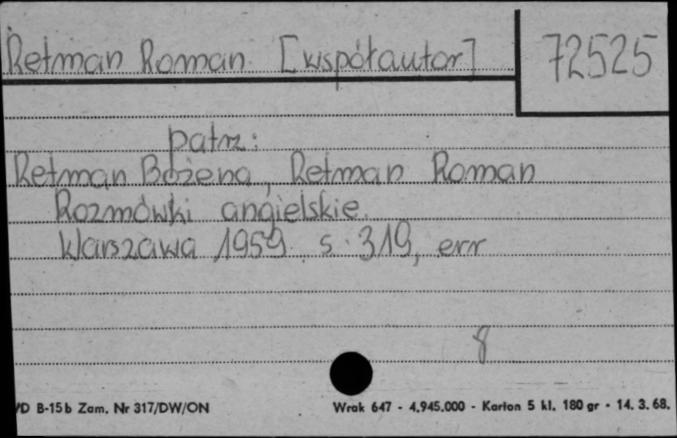 Retman Roman [współautor]
72525
patrz:
Retman Bożena, Retman Roman
Rozmówki angielskie.
Warszawa 1959. s. 319, err
8
/D B-15b Zam. Nr 317/DW/ON
Wrak 647 - 4.945.000 - Karton 5 kl. 180 gr - 14. 3. 68.